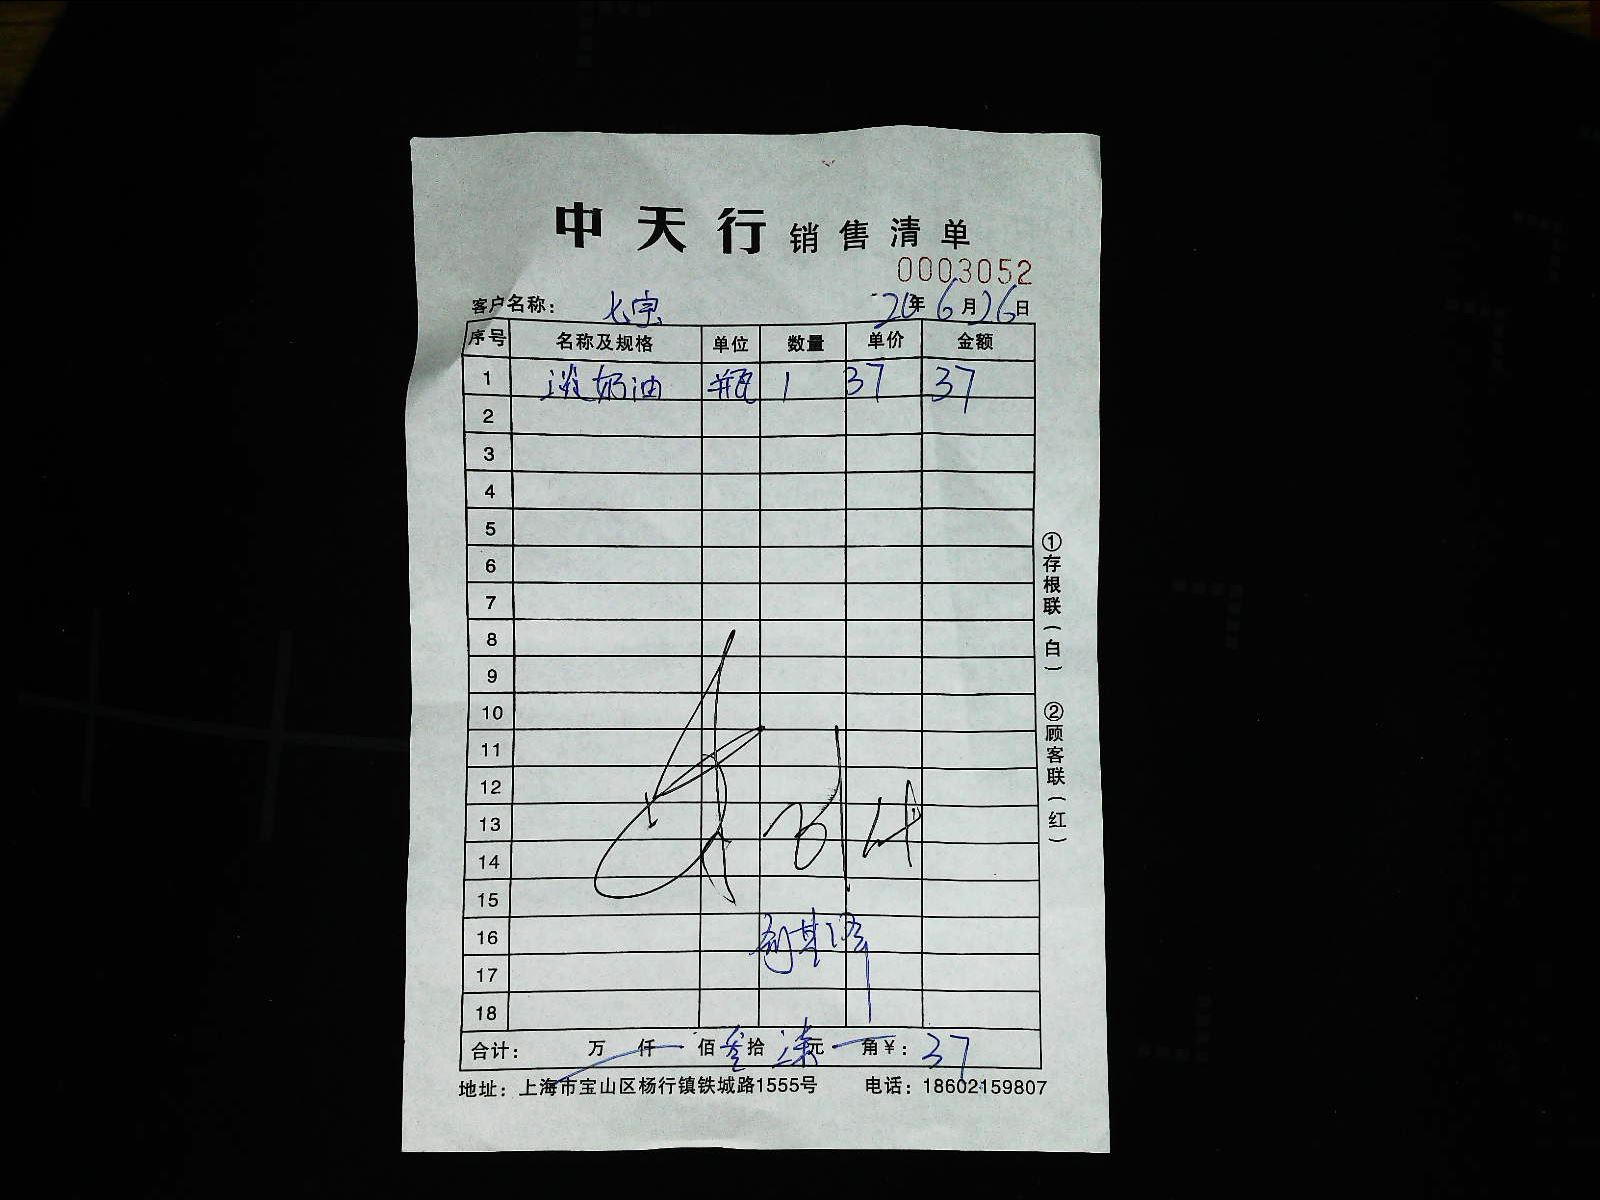 中天行销售清单
0003052
客户名称： 20年6月26日
序号 名称及规格 单位 数量 单价 金额
1 淡奶油 瓶 1 37 37
2
3
4
5
6
7
8
9
10
11
12
13
14
15
16
17
18
合计： 万 仟 佰 叁 拾 柒 元 角 ¥：37
地址：上海市宝山区杨行镇铁城路1555号 电话：18602159807
①存根联（白） ②顾客联（红）